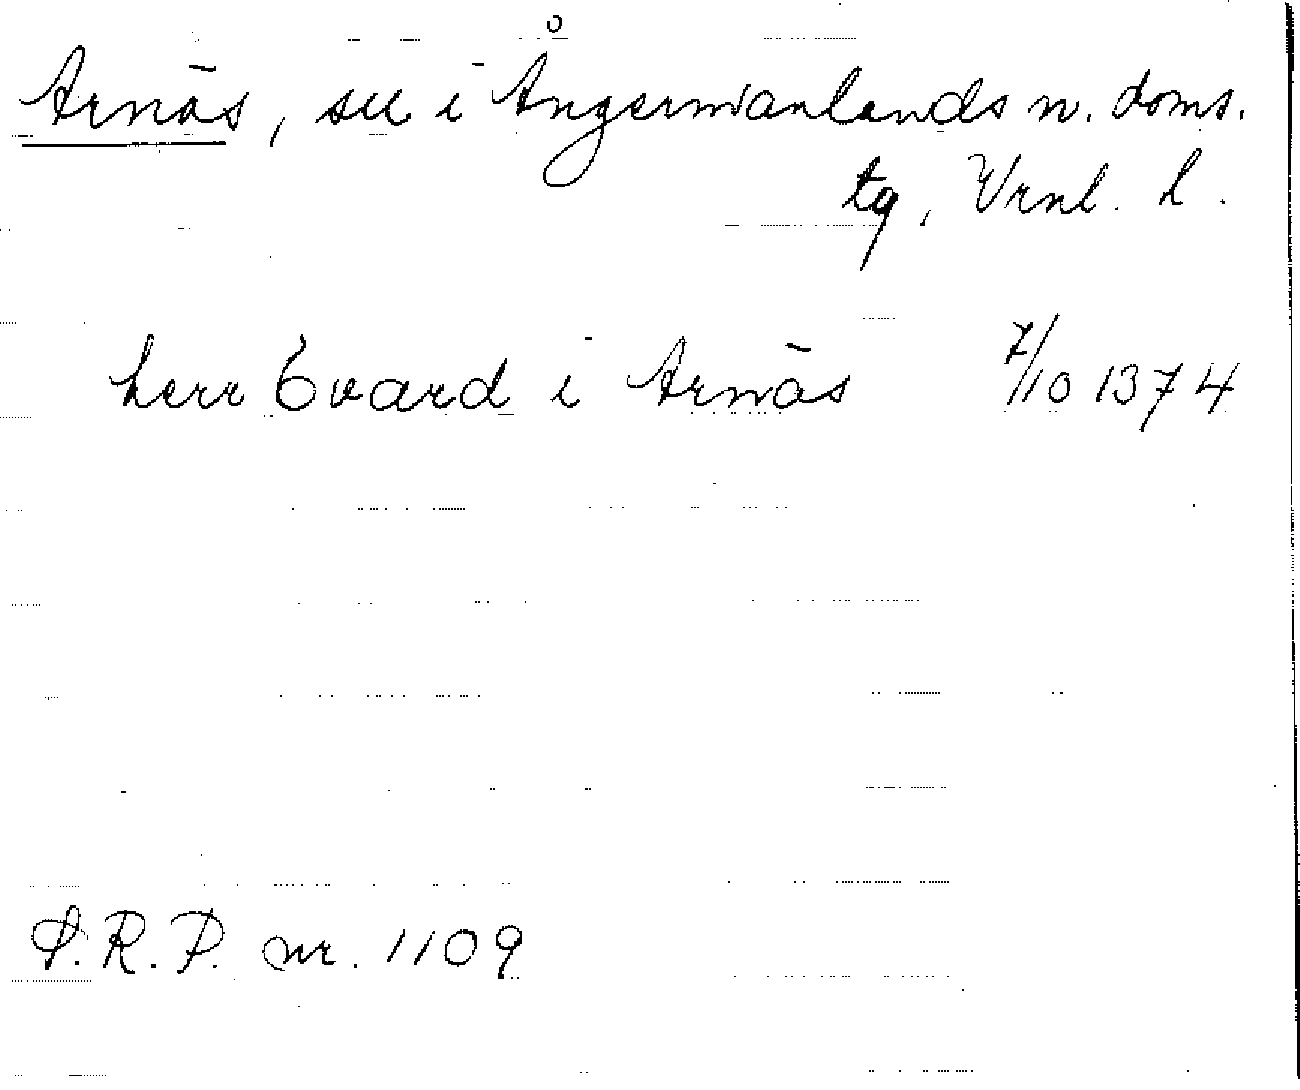 Arnäs, sn i Ångermanlands n. doms.
tg, Vrnl. l.
herr Evard i Arnäs 7/10 1374
S.R.P. nr. 1109